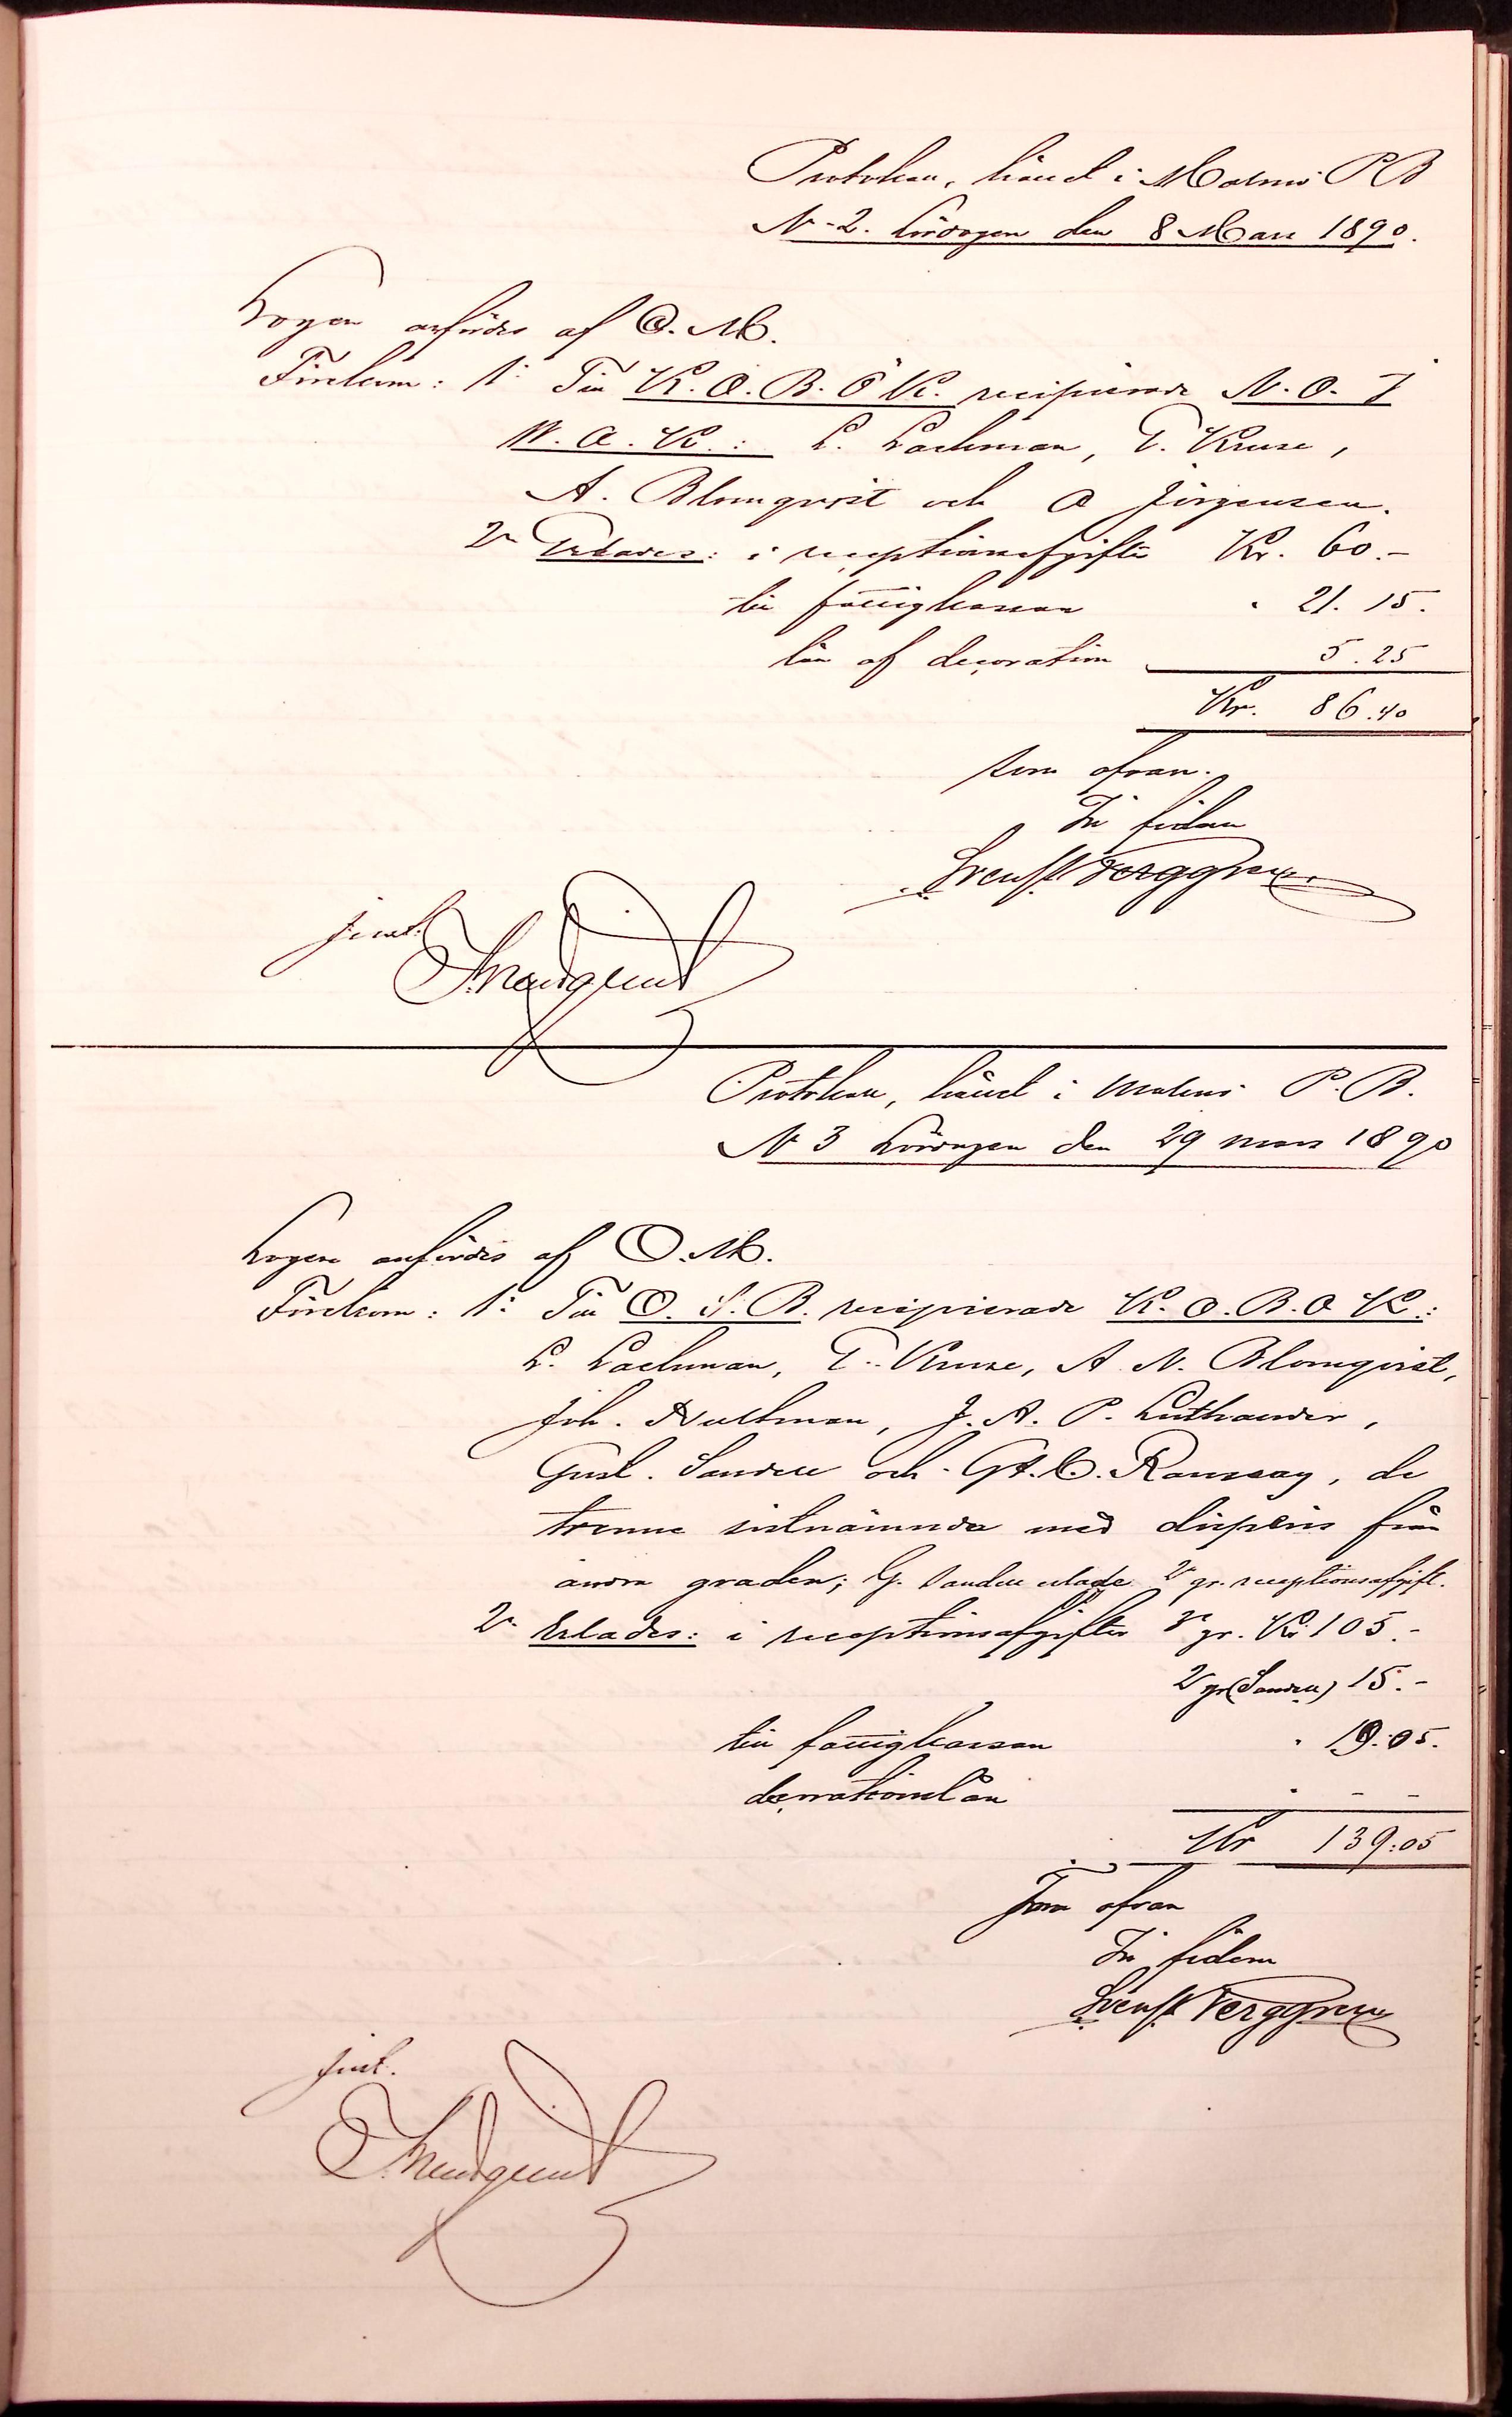 Protokoll, hållet i Malmö P B
N-2. Lördagen den 8 Mars 1890.
Logen anfördes af O. M.
Förekom: 1º Till K. O. B. O K. recipierade N. O. J
W. a. K.: L. Lachman, T. Kruse,
A. Blomqvist och O Jörgensen.
2º Erlades: i receptionsafgifter Kr. 60.–
till fattigkassan " 21. 15.
lån af decoration 5. 25
Kr. 86.40
Som ofvan.
In fidem
Just.
Protokoll, hållet i Malmö P. B.
N 3 Lördagen den 29 mars 1890
Logen anfördes af O. M.
Förekom: 1º Till O. S. B. recipierade K. O. B. O K.:
L. Lachman, T. Kruse, A N. Blomqvist,
Joh. Hultman, J. A. P. Luthander,
Gust. Sandell och G. A. C. Ramsay, de
trenne sistnämnda med dispens från
andra graden; G. Sandell erlade 2º gr. receptionsafgift.
2º Erlades: i receptionsafgifter 3º gr. Kr 105.–
2º gr (Sandell) 15.–
till fattigkassan " 19.05.
decorationslån " – –
Kr 139:05
Som ofvan
In fidem
Just.